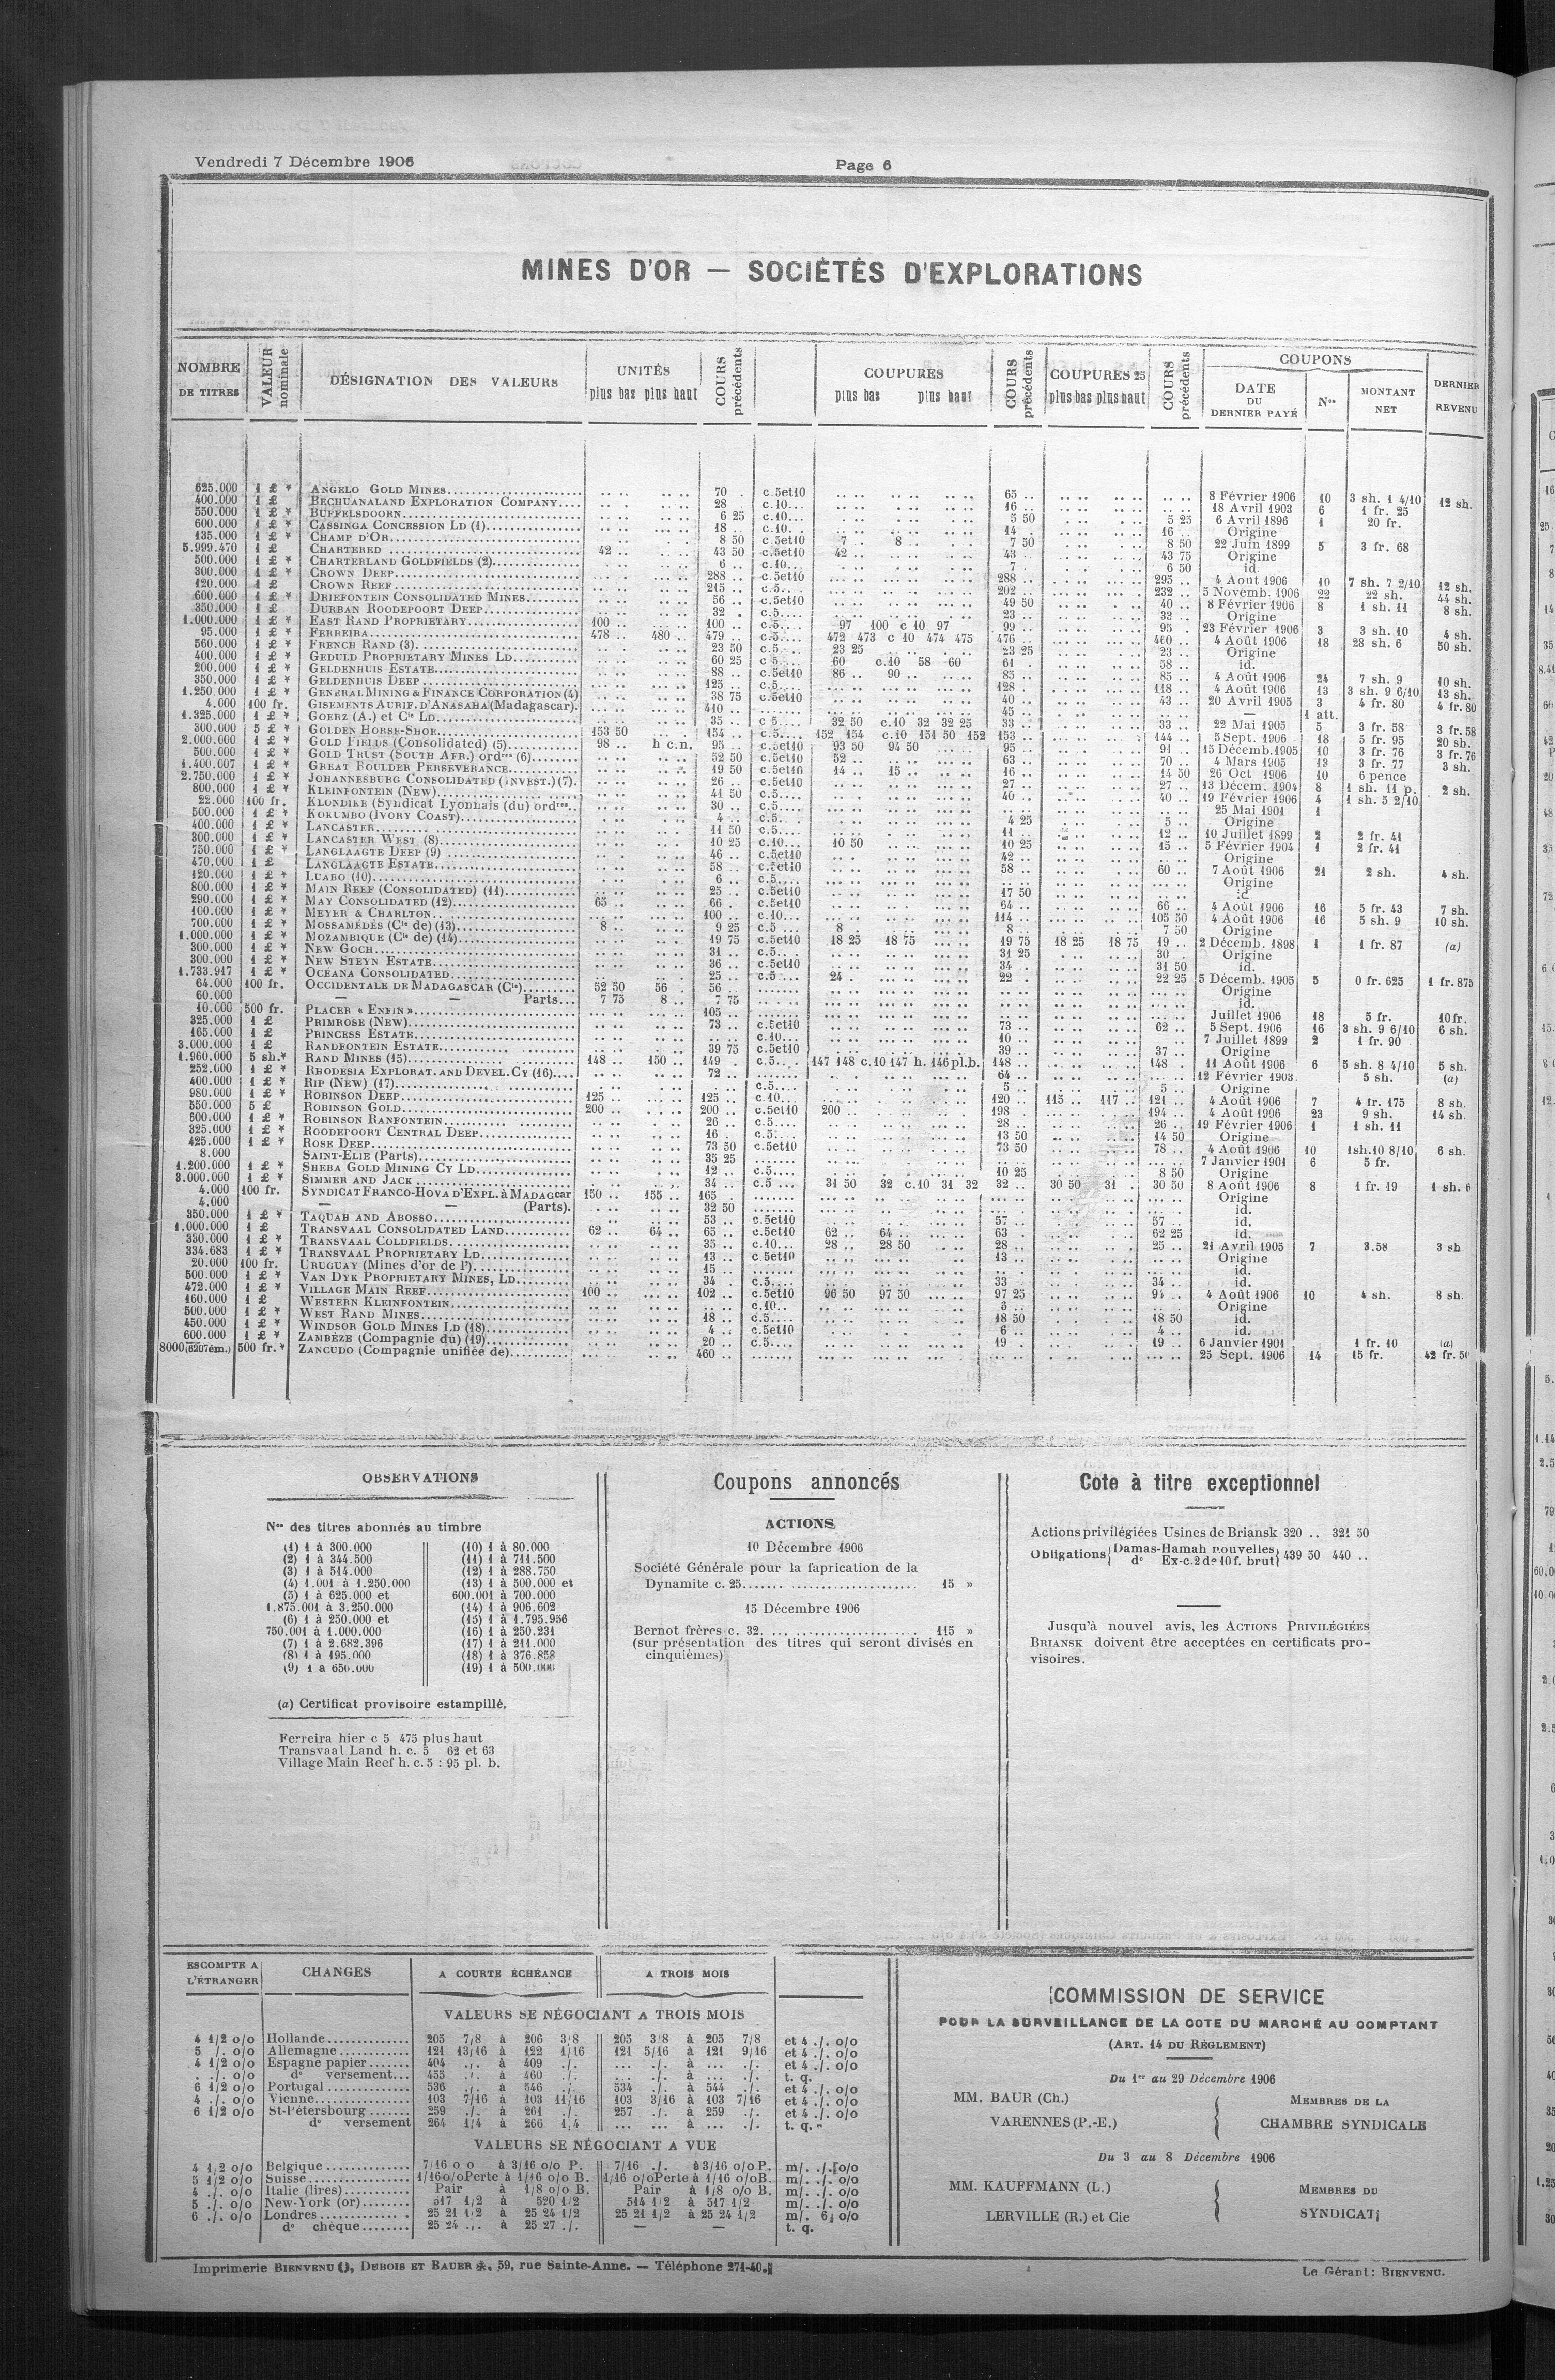 Vendredi 7 Décembre 1906
Page 6
MINES D'OR — SOCIÉTÉS D'EXPLORATIONS
NOMBRE DE TITRES | VALEUR nominale | DÉSIGNATION DES VALEURS | UNITÉS plus bas plus haut | COURS précédents | COUPURES plus bas plus haut | COURS précédents | COUPURES 25 plus bas plus haut | COURS précédents | COUPONS DATE DU DERNIER PAYÉ | Nos | MONTANT NET | DERNIER REVENU
625.000 1 £ * ANGELO GOLD MINES 70 . c.5et10 65 .. 8 Février 1906 10 3 sh. 1 4/10 12 sh.
400.000 1 £ BECHUANALAND EXPLORATION COMPANY 28 c.10 16 .. 18 Avril 1903 6 1 fr. 25
550.000 1 £ * BUFFELSDOORN 6 25 c.10 5 50 5 25 6 Avril 1896 1 20 fr.
600.000 1 £ * CASSINGA CONCESSION LD (1) 18 .. c.10 14 . 16 .. Origine
135.000 1 £ * CHAMP D'OR 8 50 c.5et10 7 . 8 .. 7 50 8 50 22 Juin 1899 5 3 fr. 68
5.999.470 1 £ CHARTERED 42 .. 43 50 c.5et10 42 .. 43 43 75 Origine
500.000 1 £ * CHARTERLAND GOLDFIELDS (2) 6 .. c.10 7 . 6 50 id.
300.000 1 £ * CROWN DEEP 288 .. c.5et10 288 .. 295 .. 4 Août 1906 10 7 sh. 7 2/10 12 sh.
120.000 1 £ CROWN REEF 215 .. c.5 202 .. 232 .. 5 Novemb. 1906 22 22 sh. 44 sh.
600.000 1 £ * DRIEFONTEIN CONSOLIDATED MINES 56 .. c.5et10 49 50 40 .. 8 Février 1906 8 1 sh. 11 8 sh.
350.000 1 £ DURBAN ROODEPOORT DEEP 32 . c.5 23 .. 32 .. Origine
1.000.000 1 £ * EAST RAND PROPRIETARY 100 .. 100 .. c.5 97 100 c 10 97 99 .. 95 . 23 Février 1906 3 3 sh. 10 4 sh.
95.000 1 £ * FERREIRA 478 .. 480 .. 479 .. c.5 472 473 c 10 474 475 476 .. 460 .. 4 Août 1906 18 28 sh. 6 50 sh.
560.000 1 £ * FRENCH RAND (3) 23 50 c.5 23 25 23 25 23 .. Origine
400.000 1 £ * GEDULD PROPRIETARY MINES LD 60 25 c 5 60 c.10 58 60 61 . 58 .. id.
200.000 1 £ * GELDENHUIS ESTATE 88 .. c.5et10 86 .. 90 .. 85 .. 85 .. 4 Août 1906 24 7 sh. 9 10 sh.
350.000 1 £ * GELDENHUIS DEEP 125 .. c.5 128 . 118 .. 4 Août 1906 13 3 sh. 9 6/10 13 sh.
1.250.000 1 £ * GENERAL MINING & FINANCE CORPORATION (4) 38 75 c.5et10 40 .. 43 .. 20 Avril 1905 3 4 fr. 80 4 fr. 80
4.000 100 fr. GISEMENTS AURIF. D'ANASAHA (Madagascar) 410 .. 45 .. — 1 att.
1.325.000 1 £ * GOERZ (A.) et Cie LD 35 .. c 5 32 50 c.10 32 32 25 33 .. 33 .. 22 Mai 1905 5 3 fr. 58 3 fr. 58
300.000 5 £ * GOLDEN HORSE-SHOE 153 50 154 .. c.5 152 154 c.10 151 50 152 153 .. 144 .. 5 Sept. 1906 18 5 fr. 95 20 sh.
2.000.000 1 £ * GOLD FIELDS (Consolidated) (5) 98 .. h c.n. 95 .. c.5et10 93 50 94 50 95 .. 91 .. 15 Décemb. 1905 10 3 fr. 76 3 fr. 76
500.000 1 £ * GOLD TRUST (SOUTH AFR.) ordres (6) 52 50 c.5et10 52 .. 63 .. 70 .. 4 Mars 1905 13 3 fr. 77 3 sh.
1.400.007 1 £ * GREAT BOULDER PERSEVERANCE 19 50 c.5et10 14 .. 15 .. 16 .. 14 50 26 Oct 1906 10 6 pence
2.750.000 1 £ * JOHANNESBURG CONSOLIDATED (INVEST.) (7) 26 .. c.5et10 27 .. 27 .. 13 Décem. 1904 8 1 sh. 11 p. 2 sh.
800.000 1 £ * KLEINFONTEIN (New) 41 50 c.5 40 .. 40 .. 19 Février 1906 4 1 sh. 5 2/10
22.000 100 fr. KLONDIKE (Syndicat Lyonnais (du) ordres 30 .. c.5 25 Mai 1901 1
500.000 1 £ * KOKUMBO (IVORY COAST) 4 .. c.5 4 25 5 .. Origine
400.000 1 £ * LANCASTER 11 50 c.5 11 .. 12 .. 10 Juillet 1899 2 2 fr. 41
300.000 1 £ * LANCASTER WEST (8) 10 25 c.10 10 50 10 25 15 .. 5 Février 1904 1 2 fr. 41
750.000 1 £ * LANGLAAGTE DEEP (9) 46 .. c.5et10 42 .. Origine
470.000 1 £ LANGLAAGTE ESTATE 58 .. c.5et10 58 .. 60 .. 7 Août 1906 21 2 sh. 4 sh.
120.000 1 £ * LUABO (10) 6 .. c.5 Origine
800.000 1 £ * MAIN REEF (CONSOLIDATED) (11) 25 .. c.5et10 17 50 id.
290.000 1 £ * MAY CONSOLIDATED (12) 65 .. 66 . c.5et10 64 .. 66 .. 4 Août 1906 16 5 fr. 43 7 sh.
100.000 1 £ * MEYER & CHARLTON 100 .. c.10 114 .. 105 50 4 Août 1906 16 5 sh. 9 10 sh.
700.000 1 £ * MOSSAMÉDÈS (Cie de) (13) 8 .. 9 25 c.5 8 . 8 .. 7 50 Origine
1.000.000 1 £ * MOZAMBIQUE (Cie de) (14) 19 75 c.5et10 18 25 18 75 19 75 18 25 18 75 19 .. 2 Décemb. 1898 1 1 fr. 87 (a)
300.000 1 £ * NEW GOCH 31 .. c.5 31 25 30 . Origine
300.000 1 £ * NEW STEYN ESTATE 36 .. c.5et10 34 . 31 50 id.
1.733.917 1 £ * OCÉANA CONSOLIDATED 25 .. c.5 24 22 .. 22 25 5 Décemb. 1905 5 0 fr. 625 1 fr. 875
64.000 100 fr. OCCIDENTALE DE MADAGASCAR (Cie) 52 50 56 . 56 .. Origine
60.000 — — Parts 7 75 8 .. 7 75 id.
10.000 500 fr. PLACER « ENFIN » 105 .. Juillet 1906 18 5 fr. 10 fr.
325.000 1 £ PRIMROSE (NEW) 73 .. c.5et10 73 .. 62 .. 5 Sept. 1906 16 3 sh. 9 6/10 6 sh.
165.000 1 £ PRINCESS ESTATE c.10 10 .. 7 Juillet 1899 2 1 fr. 90
3.000.000 1 £ RANDFONTEIN ESTATE 39 75 c.5et10 39 .. 37 .. Origine
1.960.000 5 sh.* RAND MINES (15) 148 .. 150 .. 149 . c.5 147 148 c.10 147 h. 146 pl.b. 148 .. 148 . 11 Août 1906 6 5 sh. 8 4/10 5 sh.
252.000 1 £ * RHODESIA EXPLORAT. AND DEVEL. CY (16) 72 .. 64 .. 12 Février 1903 5 sh. (a)
400.000 1 £ * RIP (NEW) (17) c.5 5 .. 5 .. Origine
980.000 1 £ * ROBINSON DEEP 125 .. 125 .. c.10 120 .. 115 .. 117 .. 121 .. 4 Août 1906 7 4 fr. 175 8 sh.
550.000 5 £ ROBINSON GOLD 200 .. 200 .. c.5et10 200 198 194 .. 4 Août 1906 23 9 sh. 14 sh.
600.000 1 £ * ROBINSON RANFONTEIN 26 .. c.5 28 .. 26 .. 19 Février 1906 1 1 sh. 11
325.000 1 £ * ROODEPOORT CENTRAL DEEP 16 . c.5 13 50 14 50 Origine
425.000 1 £ * ROSE DEEP 73 50 c.5et10 73 50 78 .. 4 Août 1906 10 1sh.10 8/10 6 sh.
8.000 SAINT-ELIE (Parts) 35 25 7 Janvier 1901 6 5 fr.
1.200.000 1 £ * SHEBA GOLD MINING CY LD 12 .. c.5 10 25 8 50 Origine
3.000.000 1 £ * SIMMER AND JACK 34 .. c.5 31 50 32 c.10 31 32 32 .. 30 50 31 . 30 50 8 Août 1906 8 1 fr. 19 1 sh. 6
4.000 100 fr. SYNDICAT FRANCO-HOVA D'EXPL. à MADAGcar 150 .. 155 .. 165 . Origine
4.000 — (Parts). 32 50 id.
350.000 1 £ * TAQUAH AND ABOSSO 53 .. c.5et10 57 .. 57 .. id.
1.000.000 1 £ TRANSVAAL CONSOLIDATED LAND 62 .. 64 .. 65 .. c.5et10 62 .. 64 .. 63 . 62 25 id.
350.000 1 £ * TRANSVAAL COLDFIELDS 35 .. c.10 28 .. 28 50 28 .. 25 .. 21 Avril 1905 7 3.58 3 sh
334.683 1 £ * TRANSVAAL PROPRIETARY LD 13 .. c 5et10 13 .. Origine
20.000 100 fr. URUGUAY (Mines d'or de l') 15 .. id.
500.000 1 £ * VAN DYK PROPRIETARY MINES, LD 34 . c.5 33 34 .. id.
472.000 1 £ * VILLAGE MAIN REEF 100 .. 102 .. c.5et10 96 50 97 50 97 25 94 .. 4 Août 1906 10 4 sh. 8 sh.
160.000 1 £ WESTERN KLEINFONTEIN c.10 5 .. Origine
500.000 1 £ * WEST RAND MINES 18 .. c.5 18 50 18 50 id.
450.000 1 £ * WINDSOR GOLD MINES LD (18) 4 .. c.5et10 6 .. 4 .. id.
600.000 1 £ * ZAMBÈZE (Compagnie du) (19) 20 .. c.5 19 . 19 .. 6 Janvier 1901 1 fr. 10 (a)
8000(6207ém.) 500 fr.* ZANCUDO (Compagnie unifiée de) 460 .. 25 Sept. 1906 14 15 fr. 42 fr. 50
OBSERVATIONS
Nos des titres abonnés au timbre
(1) 1 à 300.000
(2) 1 à 344.500
(3) 1 à 514.000
(4) 1.001 à 1.250.000
(5) 1 à 625.000 et
1.875.001 à 3.250.000
(6) 1 à 250.000 et
750.001 à 1.000.000
(7) 1 à 2.682.396
(8) 1 à 195.000
(9) 1 à 650.000
(10) 1 à 80.000
(11) 1 à 711.500
(12) 1 à 288.750
(13) 1 à 500.000 et
600.001 à 700.000
(14) 1 à 906.602
(15) 1 à 1.795.956
(16) 1 à 250.231
(17) 1 à 211.000
(18) 1 à 376.858
(19) 1 à 500.000
(a) Certificat provisoire estampillé.
Ferreira hier c 5 475 plus haut
Transvaal Land h. c. 5 62 et 63
Village Main Reef h. c. 5 : 95 pl. b.
Coupons annoncés
ACTIONS
10 Décembre 1906
Société Générale pour la faprication de la
Dynamite c. 25 15 »
15 Décembre 1906
Bernot frères c. 32 115 »
(sur présentation des titres qui seront divisés en
cinquièmes)
Cote à titre exceptionnel
Actions privilégiées Usines de Briansk 320 .. 321 50
Obligations { Damas-Hamah nouvelles
do Ex-c. 2 de 10 f. brut } 439 50 440 ..
Jusqu'à nouvel avis, les ACTIONS PRIVILÉGIÉES
BRIANSK doivent être acceptées en certificats pro-
visoires.
ESCOMPTE A L'ÉTRANGER | CHANGES | A COURTE ÉCHÉANCE | A TROIS MOIS
VALEURS SE NÉGOCIANT A TROIS MOIS
4 1/2 o/o Hollande 205 7/8 à 206 3/8 205 3/8 à 205 7/8 et 4 ./. o/o
5 ./. o/o Allemagne 121 13/16 à 122 1/16 121 5/16 à 121 9/16 et 4 ./. o/o
4 1/2 o/o Espagne papier 404 ./. à 409 ./. ... ./. à ... ./. et 4 ./. o/o
. ./. o/o do versement 455 ./. à 460 ./. ... ./. à ... ./. t. q.
6 1/2 o/o Portugal 536 ./. à 546 ./. 534 ./. à 544 ./. et 4 ./. o/o
4 ./. o/o Vienne 103 7/16 à 103 11/16 103 3/16 à 103 7/16 et 4 ./. o/o
6 1/2 o/o St-Pétersbourg 259 ./. à 261 ./. 257 ./. à 259 ./. et 4 ./. o/o
do versement 264 1/4 à 266 1/4 ... ... à ... ./. t. q.
VALEURS SE NÉGOCIANT A VUE
4 1/2 o/o Belgique 7/16 o o à 3/16 o/o P. 7/16 ./. à 3/16 o/o P. m/. ./. o/o
5 1/2 o/o Suisse 1/16 o/o Perte à 1/16 o/o B. 1/16 o/o Perte à 1/16 o/o B. m/. ./. o/o
4 ./. o/o Italie (lires) Pair à 1/8 o/o B. Pair à 1/8 o/o B. m/. ./. o/o
5 ./. o/o New-York (or) 517 1/2 à 520 1/2 514 1/2 à 517 1/2 m/. ./. o/o
6 ./. o/o Londres 25 21 1/2 à 25 24 1/2 25 21 1/2 à 25 24 1/2 m/. 6 o/o
do chèque 25 24 ./. à 25 27 ./. — — t. q.
COMMISSION DE SERVICE
POUR LA SURVEILLANCE DE LA COTE DU MARCHÉ AU COMPTANT
(ART. 14 DU RÈGLEMENT)
Du 1er au 29 Décembre 1906
MM. BAUR (Ch.)
VARENNES (P.-E.)
MEMBRES DE LA
CHAMBRE SYNDICALE
Du 3 au 8 Décembre 1906
MM. KAUFFMANN (L.)
LERVILLE (R.) et Cie
MEMBRES DU
SYNDICAT
Imprimerie BIENVENU, DUBOIS ET BAUER, 59, rue Sainte-Anne. — Téléphone 271-40.
Le Gérant : BIENVENU.